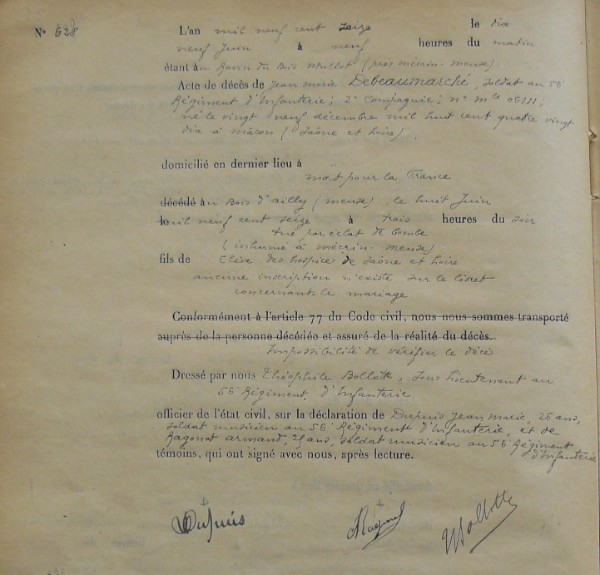 N° 628
L'an mil neuf cent seize le dix
neuf Juin à neuf heures du matin
étant au Ravin du Bois Mullot (près mécrin-meuse).
Acte de décès de Jean Marie Debeaumarché, soldat au 56e
Régiment d'Infanterie; 2e Compagnie; n° mle 06111;
né le vingt neuf décembre mil huit cent quatre vingt
dix à mâcon (Saône et Loire).
domicilié en dernier lieu à
mort pour la France
décédé au Bois d'ailly (meuse), le huit Juin
le mil neuf cent seize à trois heures du soir
tué par éclat de bombe
(inhumé à mécrin-meuse)
fils de Elève des hospice de Saône et Loire
aucune inscription n'existe sur le livret
concernant le mariage
Conformément à l'article 77 du Code civil, nous nous sommes transporté
auprès de la personne décédée et assuré de la réalité du décès.
Impossibilité de vérifier le décès
Dressé par nous Théophile Bollotte, Sous Lieutenant au
56e Régiment d'Infanterie
officier de l'état civil, sur la déclaration de Dupuis Jean Marie, 26 ans,
soldat musicien au 56e Régiment d'Infanterie, et de
Ragonat armand, 29 ans, soldat musicien au 56e Régiment
d'Infanterie
témoins, qui ont signé avec nous, après lecture.
Dupuis Ragonat Bollotte